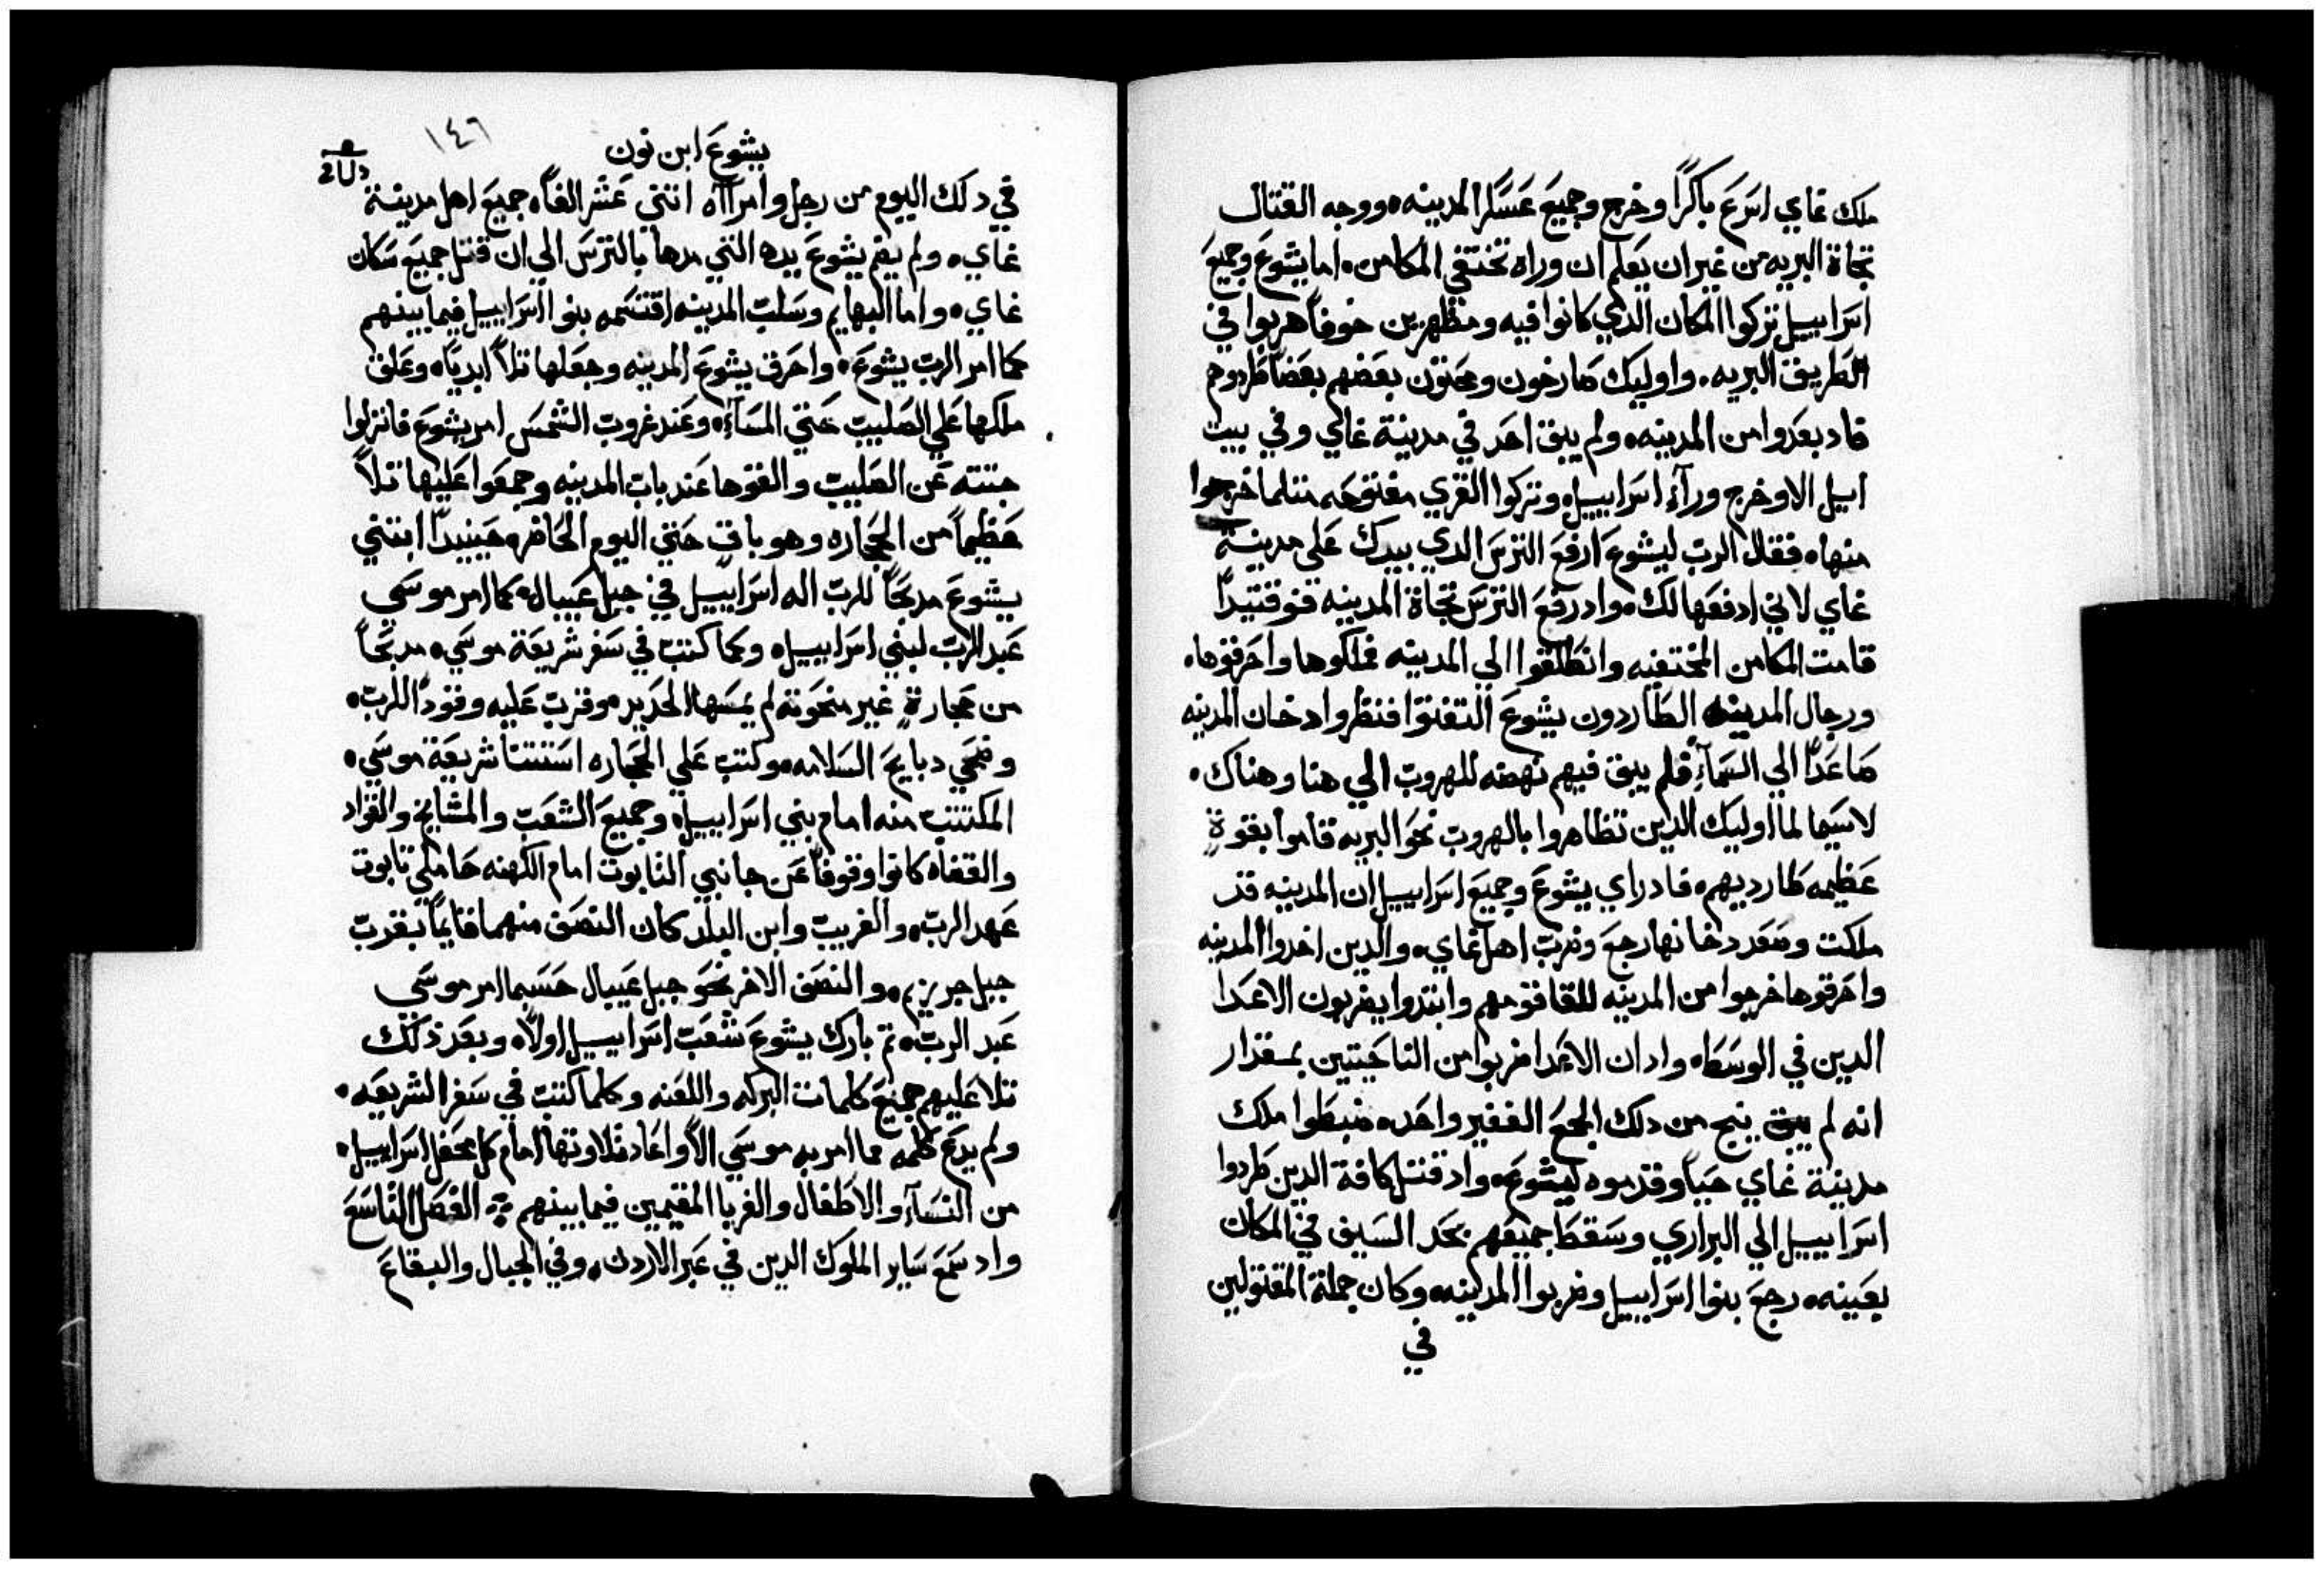 ملك غاي اسرع باكرًا وخرج وجميع عسكر المدينه ووجه القتال
تجاة البريه من غير ان يعلم ان وراه تختفي المكامن. اما يشوع وجميع
اسراييل تركوا المكان الدي كانوا فيه ومظهرين خوفاً هربوا في
الطريق البريه. واوليك صارخون ومحتون بعضهم بعضاً طردوهم
فاد بعدوا من المدينه ولم يبق احد في مدينة غاي وفي بيت
اييل الا وخرج ورآء اسراييل وتركوا القري مفتوحه متلما خرجوا
منها. فقال الرب ليشوع ارفع الترس الدي بيدك على مدينة
غاي لاني ادفعها لك. واد رفع الترس تجاة المدينه فوقتيدًا
قامت المكامن المختفيه وانطلقوا الي المدينه فملكوها واحرقوها.
ورجال المدينه الطاردون يشوع التفتوا فنظروا دخان المدينه
صاعدًا الي السمآء فلم يبق فيهم نهضه للهروب الي هنا وهناك.
لاسيما لما اوليك الدين تظاهروا بالهروب نحو البريه قاموا بقوةٍ
عظيمه طارديهم. فاد راي يشوع وجميع اسراييل ان المدينه قد
ملكت وصعد دخانها رجع وضرب اهل غاي. والدين اخدوا المدينه
واحرقوها خرجوا من المدينه للقا قومهم وابتدوا يضربون الاعدا
الدين في الوسط. واد ان الاعدا ضربوا من الناحيتين بمقدار
انه لم يبق ينج من دلك الجمع الغفير واحد. ضبطوا ملك
مدينة غاي حياً وقدموه ليشوع. واد قتل كافة الدين طردوا
اسراييل الي البراري وسقط جميعهم بحد السيف في المكان
بعينه. رجع بنوا اسراييل وضربوا المدينه وكان جملة المقتولين
في
يشوع ابن نون
١٤٦
في دلك اليوم من رجل وامرآاه اتني عشر الفاً. جميع اهل مدينة
غاي. ولم يضم يشوع يده التي مدها بالترس الي ان قتل جميع سكان
غاي. واما البهايم وسلب المدينه اقتسمه بنوا اسراييل فيما بينهم
كما امر الرب يشوع. واحرق يشوع المدينه وجعلها تلاً ابدياً. وعلق
ملكها علي الصليب حتي المسآء. وعند غروب الشمس امر يشوع فانزلوا
جتته عن الصليب والقوها عند باب المدينه وجمعوا عليها تلاً
عظيماً من الحجاره وهو باقٍ حتي اليوم الحاضر. حينيدًا ابتني
يشوع مدبحاً للرب اله اسراييل في جبل عيبال. كما امر موسي
عبد الرب لبني اسراييل. وكما كتب في سفر شريعة موسي. مدبحاً
من حجارةٍ غير منحوته لم يمسها الحديد. وقرب عليه وقودًا للرب.
وضحي دبايح السلامه. وكتب علي الحجاره استتنا شريعة موسي.
المكتتب منه امام بني اسراييل. وجميع الشعب والمشايخ والقواد
والقضاه كانوا وقوفاً عن جانبي التابوت امام الكهنه حاملي تابوت
عهد الرب. والغريب وابن البلد كان النصف منهما قايماً بقرب
جبل جريزيم. والنصف الاخر نحو جبل عيبال حسبما امر موسي
عبد الرب. تم بارك يشوع شعب اسراييل اولاً. وبعد ذلك
تلا عليهم جميع كلمات البركه واللعنه وكلما كتب في سفر الشريعه.
ولم يدع كلمه مما امر به موسي الا واعاد تلاوتها امام كل محفل اسراييل.
من النسآء والاطفال والغربا المقيمين فيما بينهم الفصل التاسع
واد سمع ساير الملوك الدين في عبر الاردن. وفي الجبال والبقاع